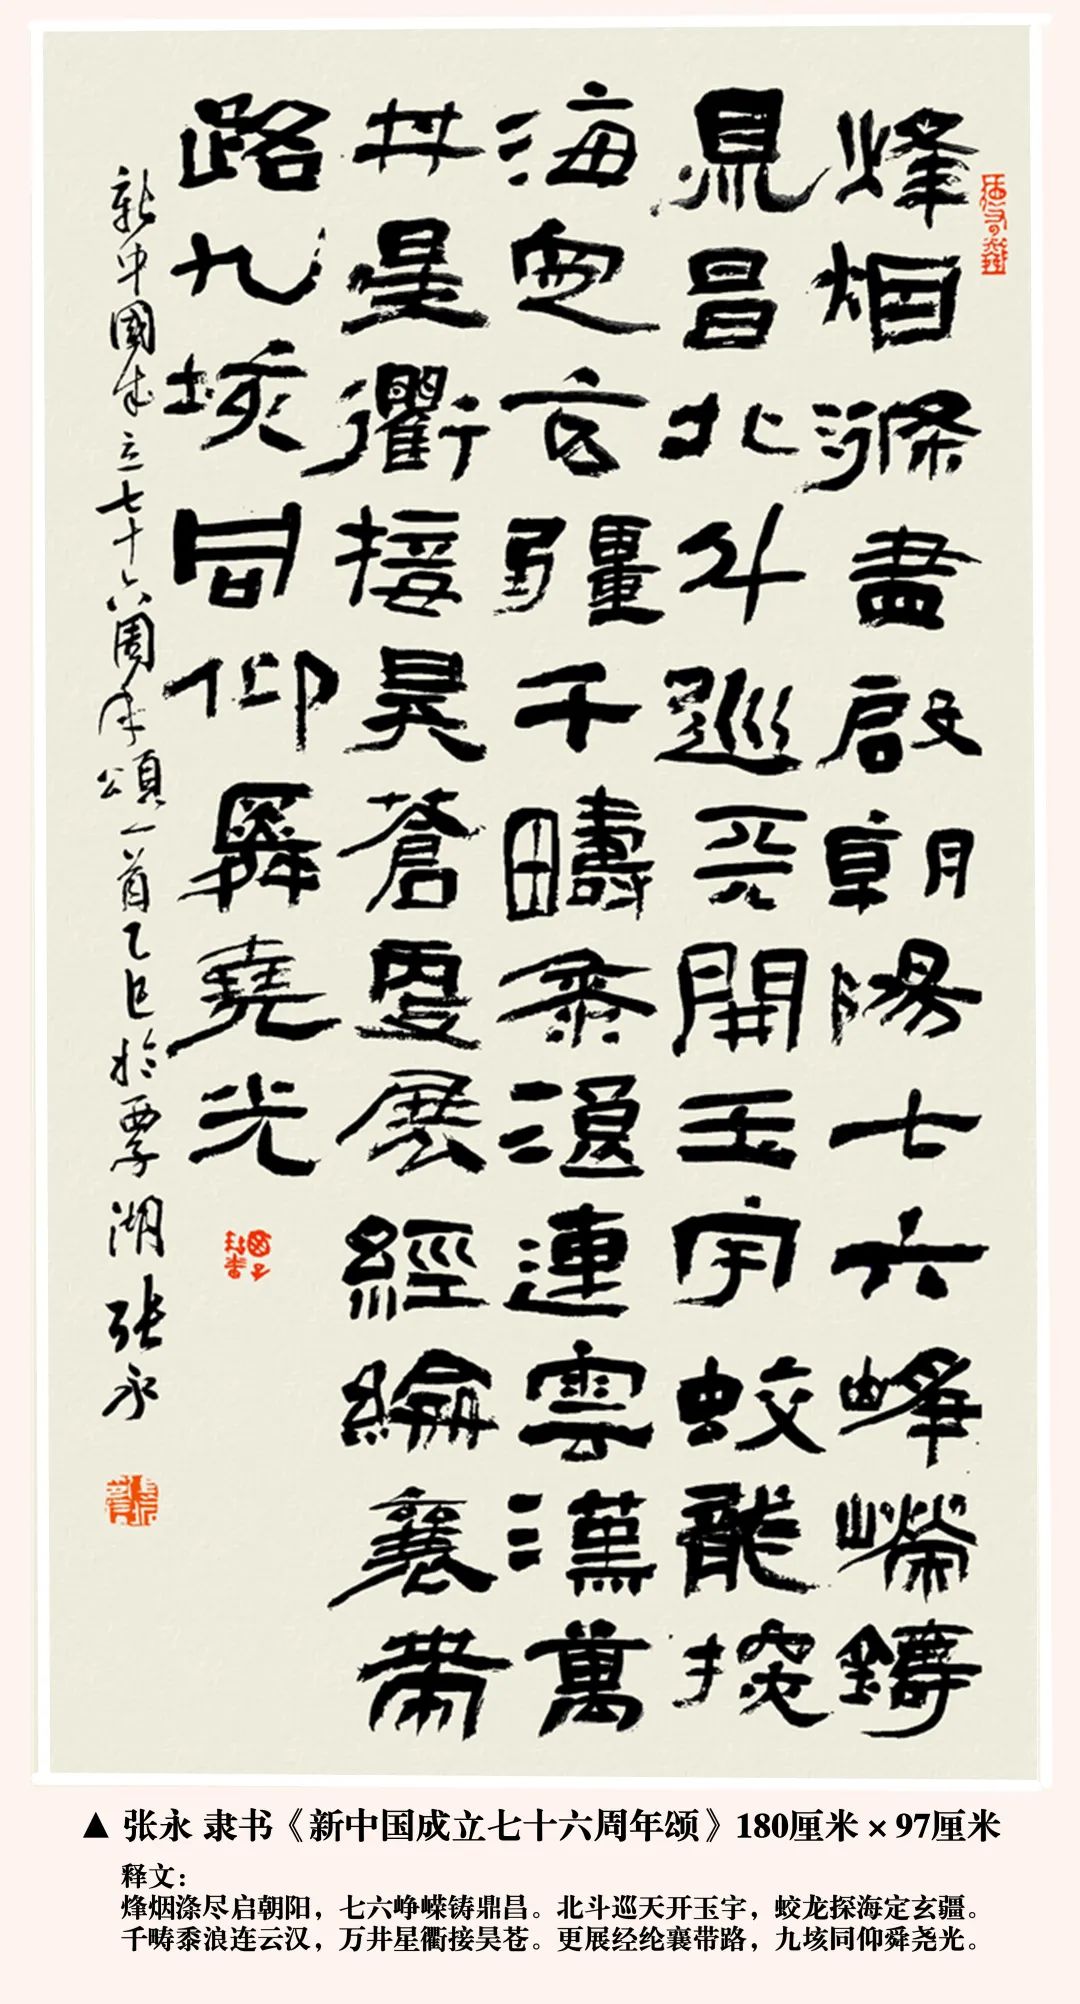 烽烟滌盡啟朝陽七六崢嶸鑄
鼎昌北斗巡天開玉宇蛟龍探
海定玄疆千疇黍浪連雲漢萬
井星衢接昊蒼更展經綸襄帶
路九垓同仰舜堯光
新中國成立七十六周年頌一首乙巳於覃湖張永
▲ 张永 隶书《新中国成立七十六周年颂》180厘米 × 97厘米
释文：
烽烟涤尽启朝阳，七六峥嵘铸鼎昌。北斗巡天开玉宇，蛟龙探海定玄疆。
千畴黍浪连云汉，万井星衢接昊苍。更展经纶襄带路，九垓同仰舜尧光。